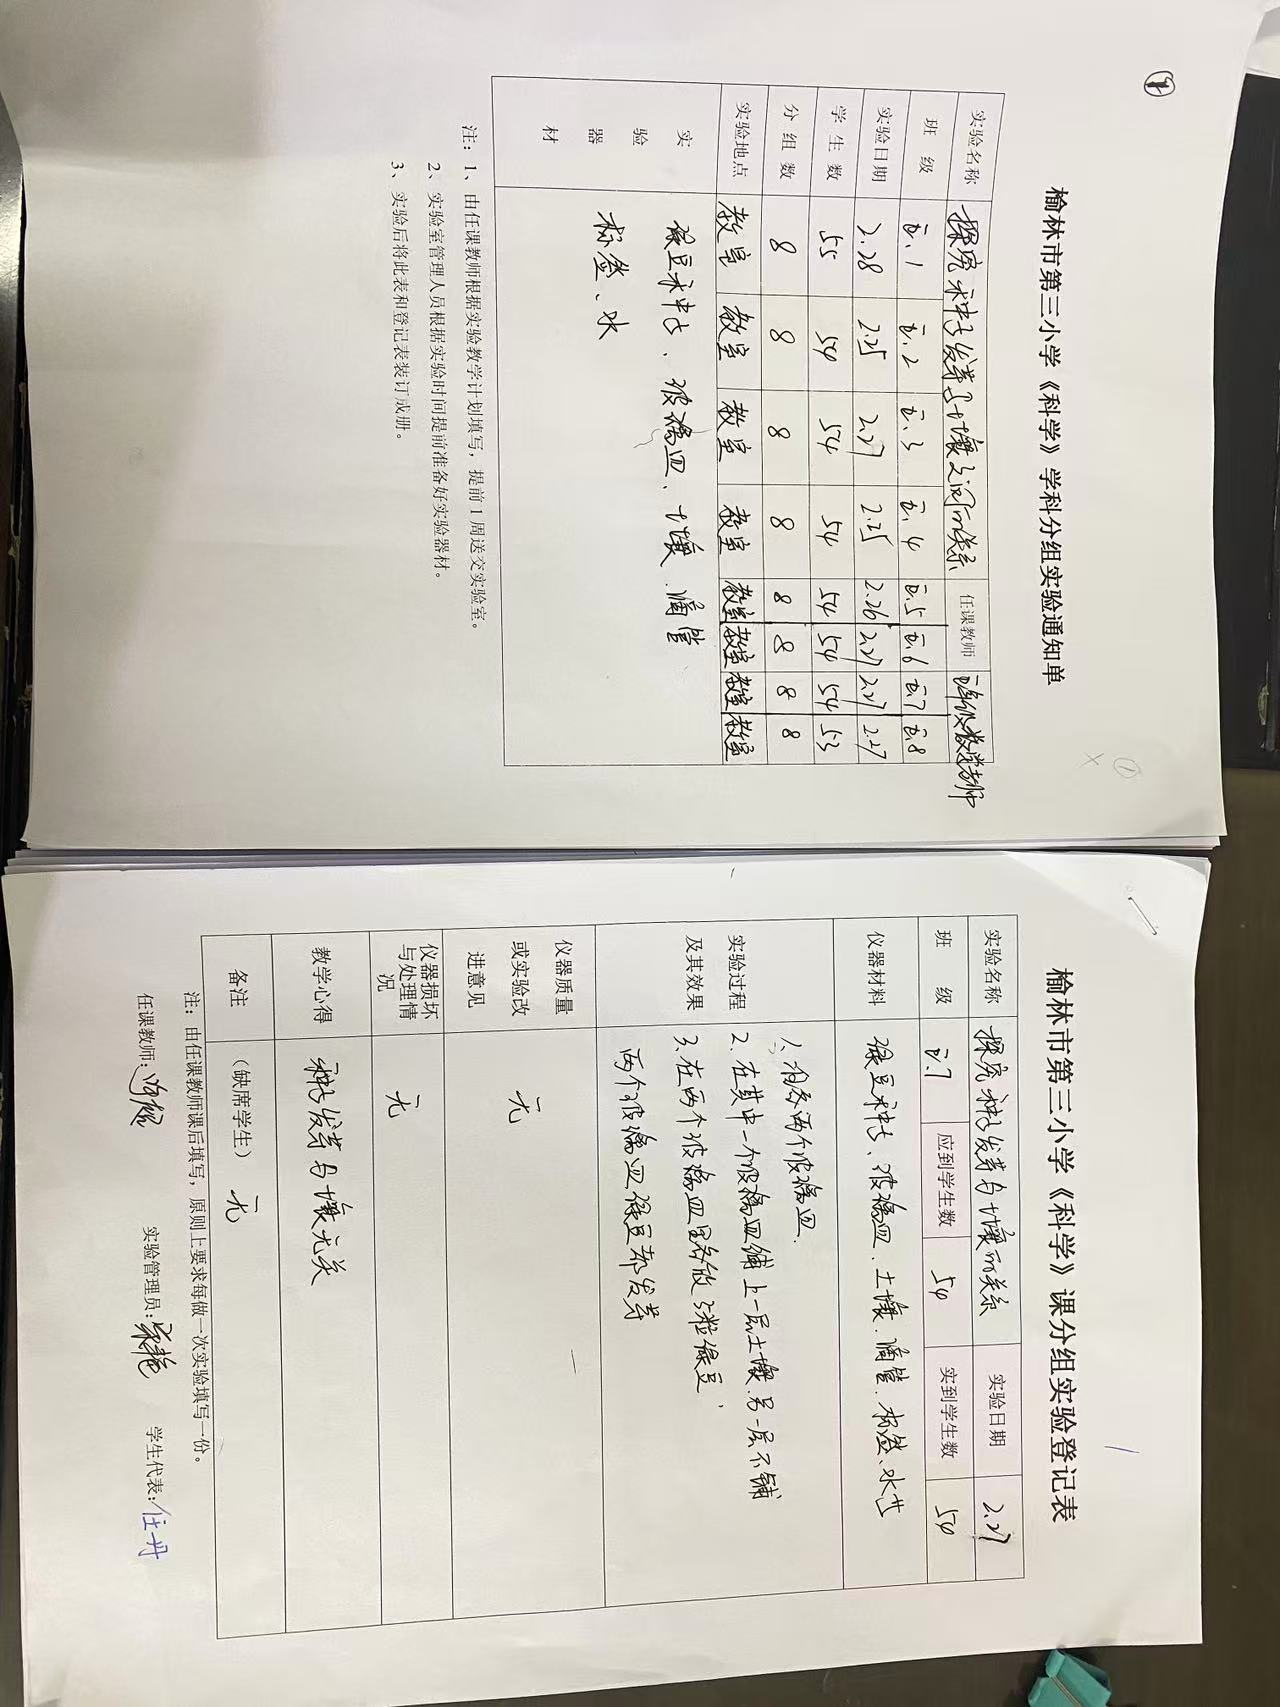 榆林市第三小学《科学》学科分组实验通知单
实验名称 探究种子发芽与土壤之间的关系 任课教师
班 级 五.1 五.2 五.3 五.4 五.5 五.6 五.7 五.8
实验日期 2.28 2.25 2.27 2.25 2.26 2.27 2.27 2.27
学生数 55 54 54 54 54 54 54 53
分组数 8 8 8 8 8 8 8 8
实验地点 教室 教室 教室 教室 教室 教室 教室 教室
实验器材 绿豆种子、玻璃皿、土壤、滴管、
标签、水
注：1、由任课教师根据实验教学计划填写，提前1周送交实验室。
2、实验室管理人员根据实验时间提前准备好实验器材。
3、实验后将此表和登记表装订成册。
榆林市第三小学《科学》课分组实验登记表
实验名称 探究种子发芽与土壤的关系 实验日期 2.27
班 级 五.7 应到学生数 54 实到学生数 54
仪器材料 绿豆种子、玻璃皿、土壤、滴管、标签、水等
实验过程及其效果 1、准备两个玻璃皿、
2、在其中一个玻璃皿铺上一层土壤,另一层不铺
3、在两个玻璃皿里各放3粒绿豆、
两个玻璃皿绿豆都发芽
仪器质量或实验改进意见 无
仪器损坏与处理情况 无
教学心得 种子发芽与土壤无关
备注 （缺席学生） 无
注：由任课教师课后填写，原则上要求每做一次实验填写一份。
任课教师: 实验管理员: 学生代表: 任丹